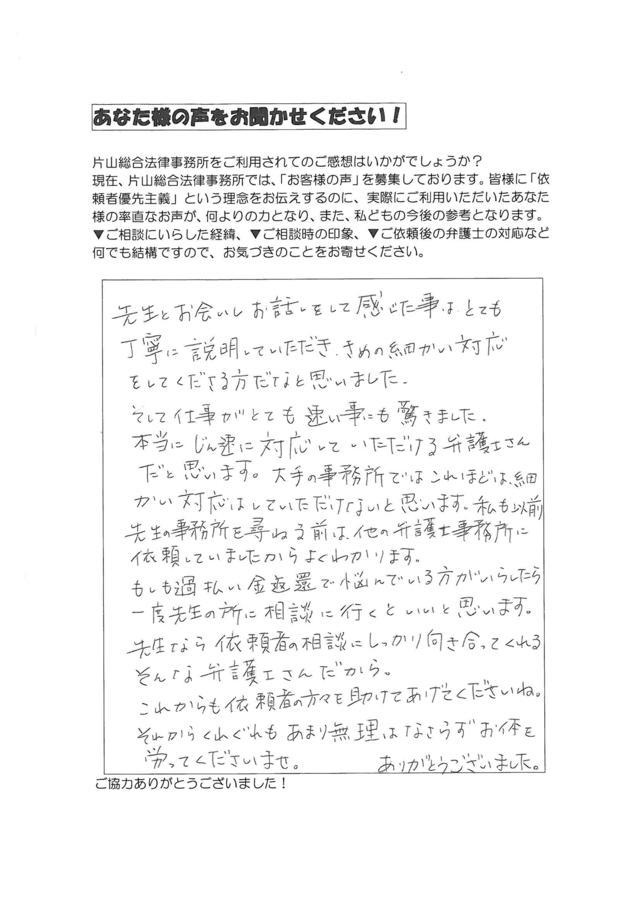 あなた様の声をお聞かせください！
片山総合法律事務所をご利用されてのご感想はいかがでしょうか？
現在、片山総合法律事務所では、「お客様の声」を募集しております。皆様に「依
頼者優先主義」という理念をお伝えするのに、実際にご利用いただいたあなた
様の率直なお声が、何よりの力となり、また、私どもの今後の参考となります。
▼ご相談にいらした経緯、▼ご相談時の印象、▼ご依頼後の弁護士の対応など
何でも結構ですので、お気づきのことをお寄せください。
先生とお会いしお話しをして感じた事は、とても
丁寧に説明していただき、きめの細かい対応
をしてくださる方だなと思いました。
そして仕事がとても速い事にも驚きました。
本当にじん速に対応していただける弁護士さん
だと思います。大手の事務所ではこれほどは、細
かい対応はしていただけないと思います。私も以前
先生の事務所を尋ねる前は、他の弁護士事務所に
依頼していましたからよくわかります。
もしも過払い金返還で悩んでいる方がいらしたら
一度先生の所に相談に行くといいと思います。
先生なら依頼者の相談にしっかり向き合ってくれる
そんな弁護士さんだから。
これからも依頼者の方々を助けてあげてくださいね。
それからくれぐれもあまり無理はなさらずお体を
労ってくださいませ。 ありがとうございました。
ご協力ありがとうございました！